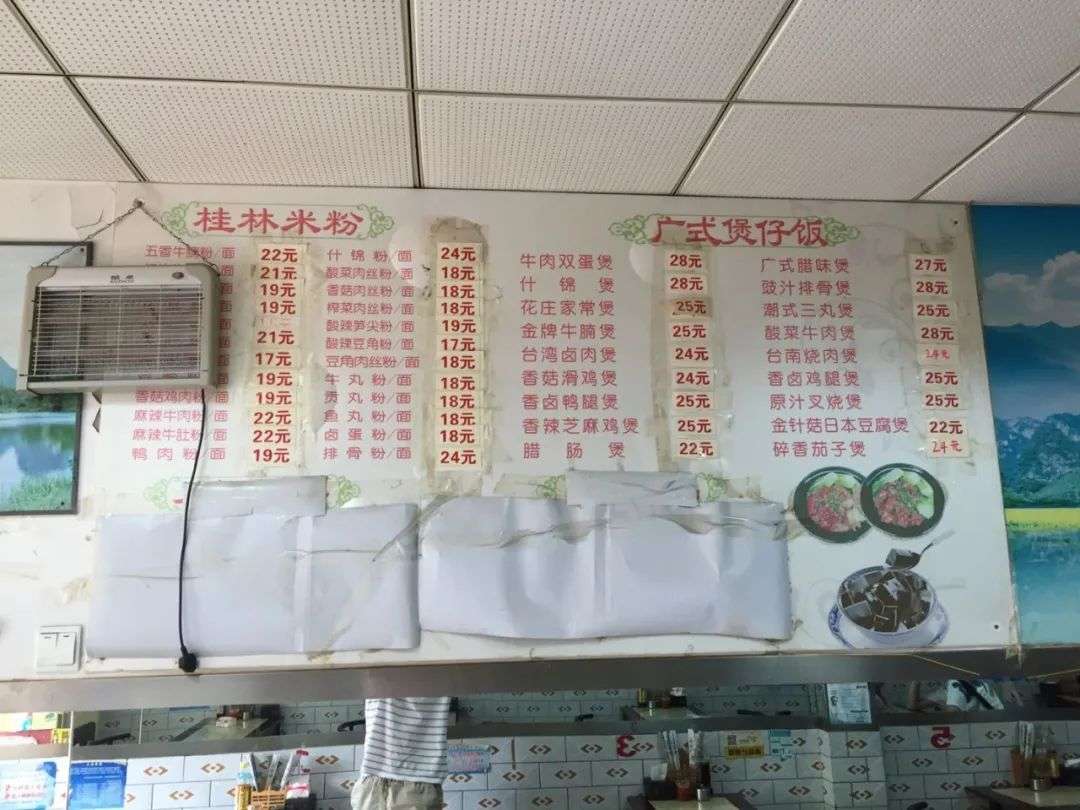 桂林米粉
五香牛腩粉/面 22元
21元
19元
19元
21元
17元
19元
香菇鸡肉粉/面 19元
麻辣牛肉粉/面 22元
麻辣牛肚粉/面 22元
鸭肉粉/面 19元
什锦粉/面 24元
酸菜肉丝粉/面 18元
香菇肉丝粉/面 18元
榨菜肉丝粉/面 18元
酸辣笋尖粉/面 19元
酸辣豆角粉/面 17元
豆角肉丝粉/面 18元
牛丸粉/面 18元
贡丸粉/面 18元
鱼丸粉/面 18元
卤蛋粉/面 18元
排骨粉/面 24元
广式煲仔饭
牛肉双蛋煲 28元
什锦煲 28元
花庄家常煲 25元
金牌牛腩煲 25元
台湾卤肉煲 24元
香菇滑鸡煲 24元
香卤鸭腿煲 25元
香辣芝麻鸡煲 25元
腊肠煲 22元
广式腊味煲 27元
豉汁排骨煲 28元
潮式三丸煲 25元
酸菜牛肉煲 28元
台南烧肉煲 24元
香卤鸡腿煲 25元
原汁叉烧煲 25元
金针菇日本豆腐煲 22元
碎香茄子煲 24元
3
5